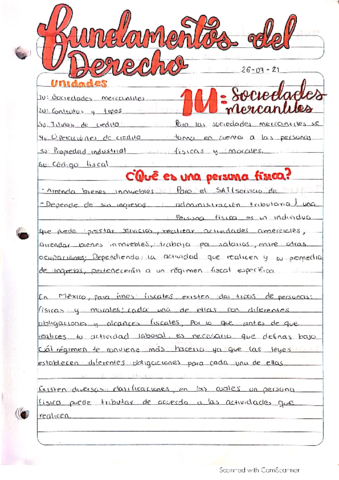 Fundamentos del
Derecho
26-07-21
Unidades
1u: Sociedades mercantiles
2u: Contratos y tipos
3u: Títulos de crédito
4u: Operaciones de crédito
5u: Propiedad industrial
6u: Código fiscal
1U: Sociedades
mercantiles
Para las sociedades mercantiles se
toma en cuenta a las personas
físicas y morales.
¿Qué es una persona física?
- Arrenda bienes inmuebles
- Depende de sus ingresos
Para el SAT (servicio de
administración tributaria) una
persona física es un individuo
que puede prestar servicios, realizar actividades comerciales,
arrendar bienes inmuebles, trabajar por salarios, entre otras
ocupaciones; Dependiendo la actividad que realicen y su promedio
de ingresos, pertenecerán a un régimen fiscal específico.
En México, para fines fiscales existen dos tipos de personas:
físicas y morales; cada una de ellas con diferentes
obligaciones y alcances fiscales. Por lo que antes de que
realices tu actividad laboral es necesario que definas bajo
cuál régimen te conviene más hacerlo ya que las leyes
establecen diferentes obligaciones para cada una de ellas.
Existen diversas clasificaciones, en las cuales un persona
física puede tributar de acuerdo a las actividades que
realicen.
Scanned with CamScanner